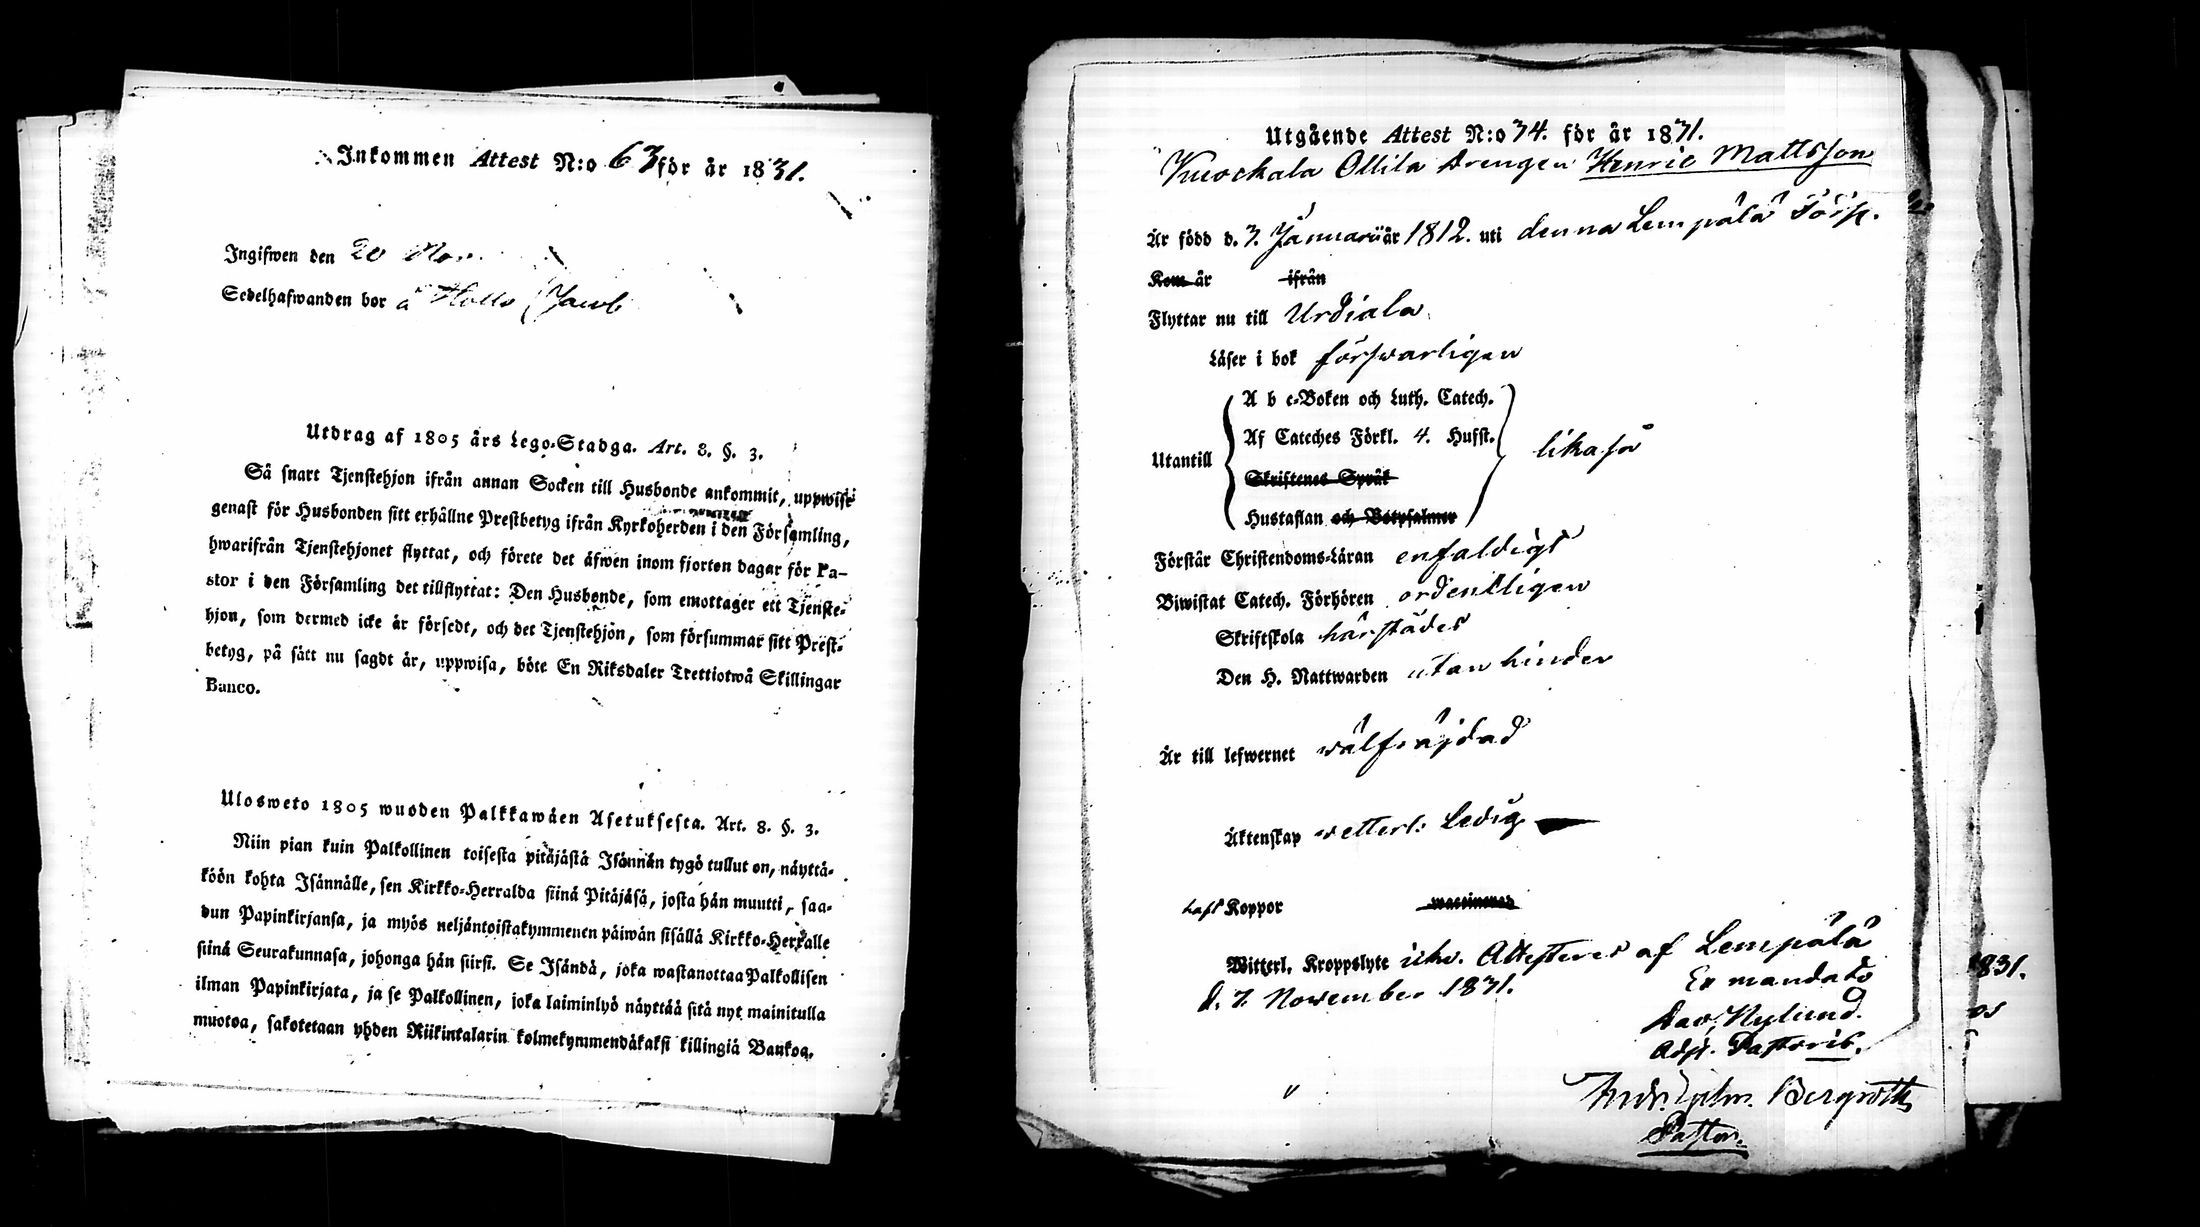 Inkommen Attest N:o 63 för år 1831.
Ingifwen den 20 Nov.
Sedelhafwanden bor å Jacob
Utdrag af 1805 års Lego-Stadga. Art. 8. §. 3.
Så snart Tjenstehjon ifrån annan Socken till Husbonde ankommit, uppwise
genast för Husbonden sitt erhållne Prestbetyg ifrån Kyrkoherden i den Församling,
hwarifrån Tjenstehjonet flyttat, och förete det äfwen inom fjorton dagar för Pa-
stor i den Församling det tillflyttat: Den Husbonde, som emottager ett Tjenste-
hjon, som dermed icke är försedt, och det Tjenstehjon, som försummar sitt Prest-
betyg, på sätt nu sagdt är, uppwisa, böte En Riksdaler Trettiotwå Skillingar
Banco.
Ulosweto 1805 wuoden Palkkawäen Asetuksesta. Art. 8. §. 3.
Niin pian kuin Palkollinen toisesta pitäjästä Isännän tygö tullut on, näyttä-
köön kohta Isännälle, sen Kirkko-Herralda siinä Pitäjäsä, josta hän muutti, saa-
dun Papinkirjansa, ja myös neljäntoistakymmenen päiwän sisällä Kirkko-Herralle
siinä Seurakunnasa, johonga hän siirsi. Se Isändä, joka wastanottaa Palkollisen
ilman Papinkirjata, ja se Palkollinen, joka laiminlyö näyttää sitä nyt mainitulla
muotoa, sakotetaan yhden Riikintalarin kolmekymmendäkaksi killingiä Bankoa.
Utgående Attest N:o 34. för år 1831.
Kuockala Ollila Drengen Henric Mattsson
Är född d. 3. Januarii år 1812. uti denna Lempälä Förs.
Kom år ifrån
Flyttar nu till Urdiala
Läser i bok förswarligen
A b c-Boken och Luth. Catech.
Af Cateches Förkl. 4. Hufst.
Utantill likaså
Skriftenes Språk
Hustaflan och Botpsalmer
Förstår Christendoms-Läran enfaldigt
Biwistat Catech. Förhören ordentligen
Skriftskola härstädes
Den H. Nattwarden utan hinder
Är till lefwernet wälfräjdad
Äktenskap wetterl. Ledig
haft Koppor
Witterl. Kroppslyte icke. Attesteres af Lempälä
d. 7. November 1831.
Ex mandato
Dav. Nylund.
Adj. Pastoris.
Bergroth
Pastor.
1831.